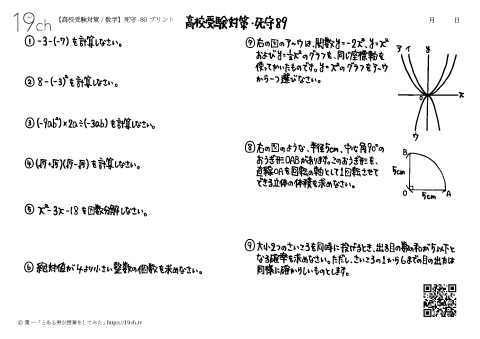 19ch
【高校受験対策/数学】死守-89 プリント
高校受験対策・死守89
月 日
① -3-(-7) を計算しなさい。
② 8-(-3)²を計算しなさい。
③ (-9ab²)×2a÷(-3ab)を計算しなさい。
⑤ x²-3x-18を因数分解しなさい。
⑥ 絶対値が4より小さい整数の個数を求めなさい。
⑦ 右の図のア~ウは、関数y=-2x²、y=x²
およびy=½x²のグラフを、同じ座標軸を
使ってかいたものです。y=x²のグラフをア~ウ
から1つ選びなさい。
ア イ y
x
0
ウ
⑧ 右の図のような、半径5cm、中心角90°の
おうぎ形OABがあります。このおうぎ形を、
直線OAを回転の軸として1回転させて
できる立体の体積を求めなさい。
B
5cm
O 5cm A
⑨ 大小2つのさいころを同時に投げるとき、出る目の数の和が5以下と
なる確率を求めなさい。ただし、さいころの1から6までの目の出方は
同様に確からしいものとします。
© 葉一「とある男が授業をしてみた」https://19ch.tv